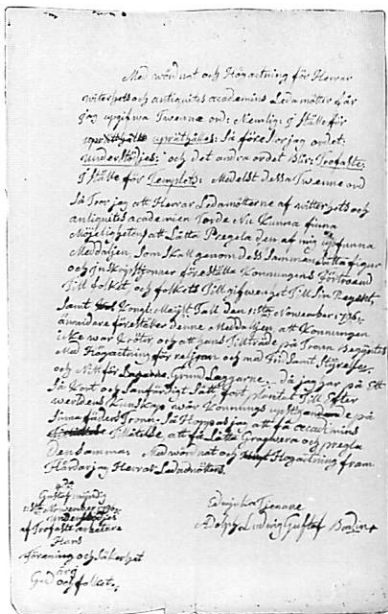 Med wördnat och Högacktning för Herrar
witerhets och antiquitets academins Ledamötter får
jag upgifwa Twenne ord: Nemlig: i stälte för
uprätthålles: Så föreslår jag ordet:
understödjes: och det andra ordet blir: Trofaste:
i Stälte för Templets: Medelst dessa Twenne ord
Så Tror jag att Herrar Ledamötterne af witterhets och
antiquitets academien Torde Nu Kunna finna
Möjeligheten att Låtta Pregela den af mig upfunna
Meddaljen, som skall genom dess Sammansatta figur
och inskriptionner föreställa Konungens förtroend
Till folket och folkets Tillgifwenhet Till Sin Regent,
Samt Kongl: Majst Tall den 1sta November 1796;
änwidare föreställer denne Meddaljen att Konungen
icke war Krönt, och att hans Tillträde på Tronen Begyntes
Med Högacktning för religion och med fri Samt Styrelse,
och Nitt för Grund Laggarne, Då jag par på Ett
Så Kort och Sanfärdigt Sätt fort plentat Till Efter
werldens Kunskap wår Konungs up på
Sinna fäders Tron: Så Hoppas jag att få accadimins
Tillåtelse att få Låtta Graphera och pregla
Densamma: Med wördnat och Högacktning fram
Härdar jag Herrar Ledamöters
Gustaf myndig
1sta November 1796:
understödjes
af Trofaste arbetare
Hans
förening och Säkerhet
ärg
Gud och folket:
Edmjuka Tjenare
Adolph Ludwig Gustaf